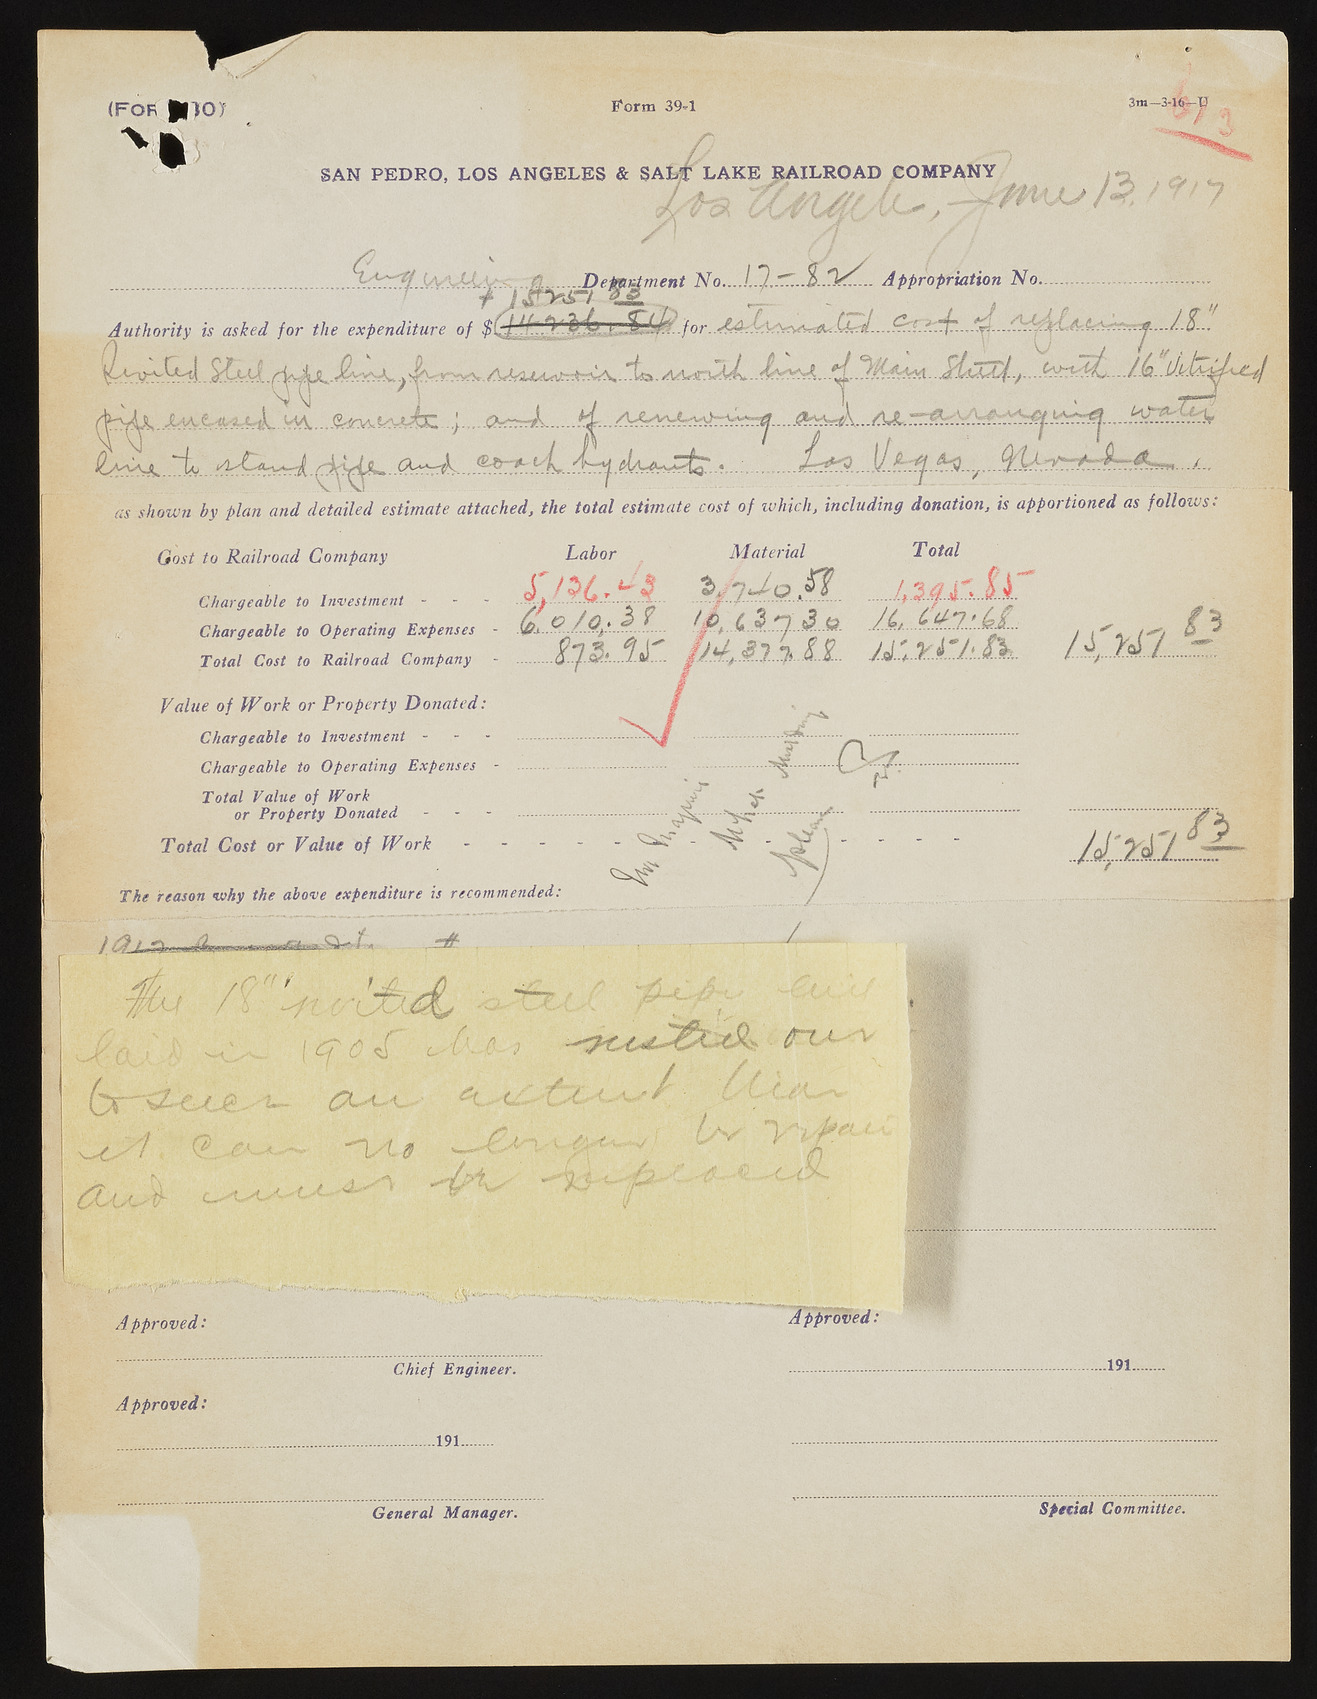 (FOR 30)
Form 39-1
3m—3-16—U
613
SAN PEDRO, LOS ANGELES & SALT LAKE RAILROAD COMPANY
Los Angeles, June 13, 1917
Engineering Department No. 17-82 Appropriation No.
15251 83
Authority is asked for the expenditure of $ 14236.84 for estimated cost of replacing 18"
Rivited Steel pipe line, from reservoir to north line of Main Street, with 16" Vitrified
pipe encased in concrete; and of renewing and re-arranging water
line to stand pipe and coach hydrants. Las Vegas, Nevada.
as shown by plan and detailed estimate attached, the total estimate cost of which, including donation, is apportioned as follows:
Cost to Railroad Company Labor Material Total
Chargeable to Investment - - - 5,136.43 3,740.58 1,395.85
Chargeable to Operating Expenses - 6,010.38 10,637 30 16,647.68
Total Cost to Railroad Company - 873.95 14,377.88 15,251.83 15,251 83
Value of Work or Property Donated:
Chargeable to Investment - - -
Chargeable to Operating Expenses -
Total Value of Work
or Property Donated - - -
Total Cost or Value of Work - - - 15,251 83
please
The reason why the above expenditure is recommended:
The 18" rivited steel pipe line
laid in 1905 has rusted out
to such an extent that
it can no longer be repair
and must be replaced
Approved:
Approved:
Chief Engineer.
191
Approved:
191
General Manager.
Special Committee.